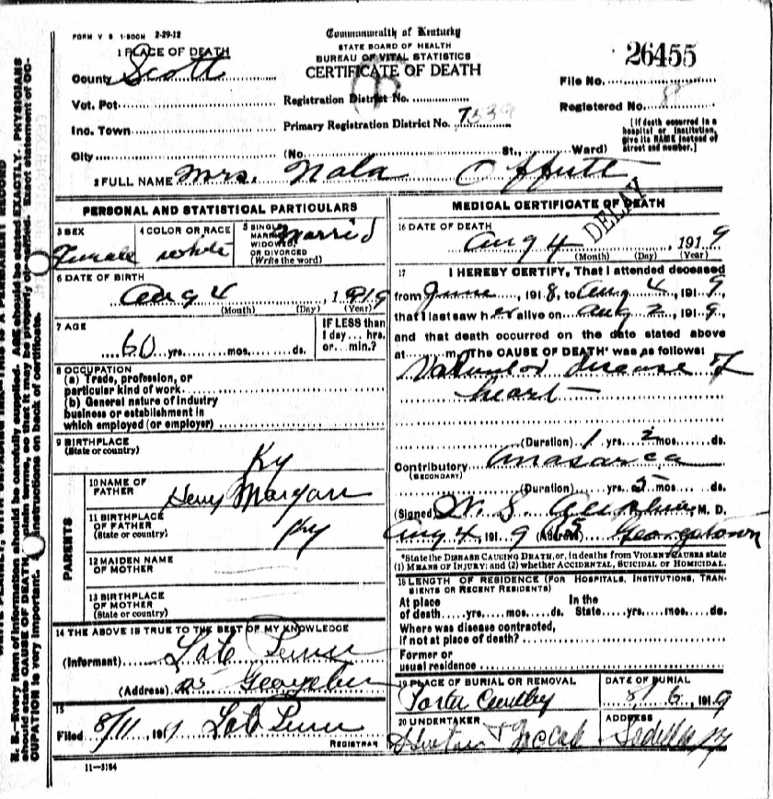 FORM V S 1-500M 2-29-12
Commonwealth of Kentucky
STATE BOARD OF HEALTH
BUREAU OF VITAL STATISTICS
CERTIFICATE OF DEATH
26455
File No.
Registered No. 8
[If death occurred in a
hospital or institution,
give its NAME instead of
street and number.]
1 PLACE OF DEATH
County Scott
Vot. Pct.
Inc. Town
City
Registration District No.
Primary Registration District No.
(No. St., Ward)
2 FULL NAME Mrs. Nola Offutt
PERSONAL AND STATISTICAL PARTICULARS
3 SEX
Female
4 COLOR OR RACE
white
5 SINGLE
MARRIED
WIDOWED
OR DIVORCED
(Write the word)
Married
6 DATE OF BIRTH
Aug 4 1919
(Month) (Day) (Year)
7 AGE
60 yrs. mos. ds.
IF LESS than
1 day... hrs.
or... min.?
8 OCCUPATION
(a) Trade, profession, or
particular kind of work
(b) General nature of industry
business or establishment in
which employed (or employer)
9 BIRTHPLACE
(State or country)
Ky
PARENTS
10 NAME OF
FATHER
Henry Morgan
11 BIRTHPLACE
OF FATHER
(State or country)
Ky
12 MAIDEN NAME
OF MOTHER
13 BIRTHPLACE
OF MOTHER
(State or country)
14 THE ABOVE IS TRUE TO THE BEST OF MY KNOWLEDGE
(Informant)
(Address)
15
Filed 8/11 191
REGISTRAR
11-3184
MEDICAL CERTIFICATE OF DEATH
DELAY
16 DATE OF DEATH
Aug 4 1919
(Month) (Day) (Year)
17 I HEREBY CERTIFY, That I attended deceased
from June 1918, to Aug 4, 1919,
that I last saw her alive on Aug 2, 1919,
and that death occurred on the date stated above
at m. The CAUSE OF DEATH* was as follows:
Valvular disease of
heart
(Duration) 1 yrs. 2 mos. ds.
Contributory Anasarca
(SECONDARY)
(Duration) yrs. 5 mos. ds.
(Signed) M. D.
Aug 4, 1919 (Address) Georgetown
*State the DISEASE CAUSING DEATH, or, in deaths from VIOLENT CAUSES state
(1) MEANS OF INJURY; and (2) whether ACCIDENTAL, SUICIDAL OR HOMICIDAL.
18 LENGTH OF RESIDENCE (FOR HOSPITALS, INSTITUTIONS, TRANSIENTS OR RECENT RESIDENTS)
At place
of death yrs. mos. ds.
In the
State yrs. mos. ds.
Where was disease contracted,
if not at place of death?
Former or
usual residence
19 PLACE OF BURIAL OR REMOVAL
Porter
DATE OF BURIAL
8/6 1919
20 UNDERTAKER
ADDRESS